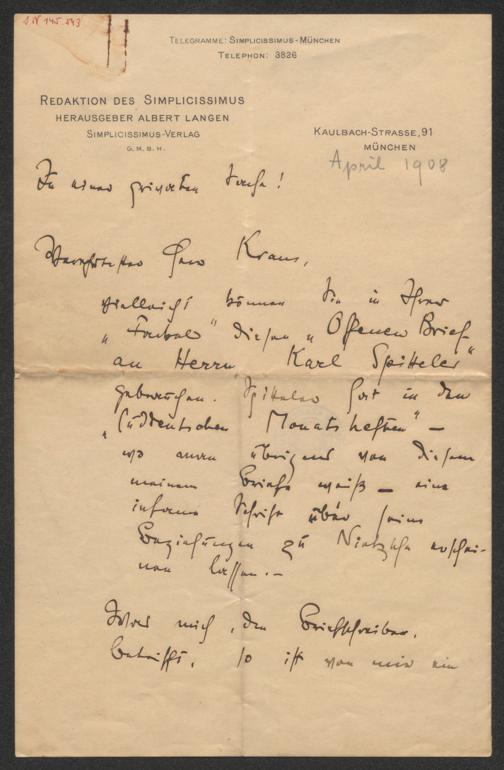 TELEGRAMME: SIMPLICISSIMUS-MÜNCHEN
TELEPHON: 3826
REDAKTION DES SIMPLICISSIMUS
HERAUSGEBER ALBERT LANGEN
SIMPLICISSIMUS-VERLAG
G. M. B. H.
KAULBACH-STRASSE, 91
MÜNCHEN
April 1908
In einer privaten Sache!
Verehrtester Herr Kraus,
vielleicht können Sie in Ihrer
„Fackel" diesen „Offenen Brief
an Herrn Karl Spitteler"
gebrauchen. Spitteler hat in den
„Süddeutschen Monatsheften" —
wo man übrigens von diesem
meinem Briefe weiß — eine
infame Schrift über seine
Beziehungen zu Nietzsche erschei-
nen lassen. —
Was mich, den Briefschreiber,
betrifft, so ist von mir ein